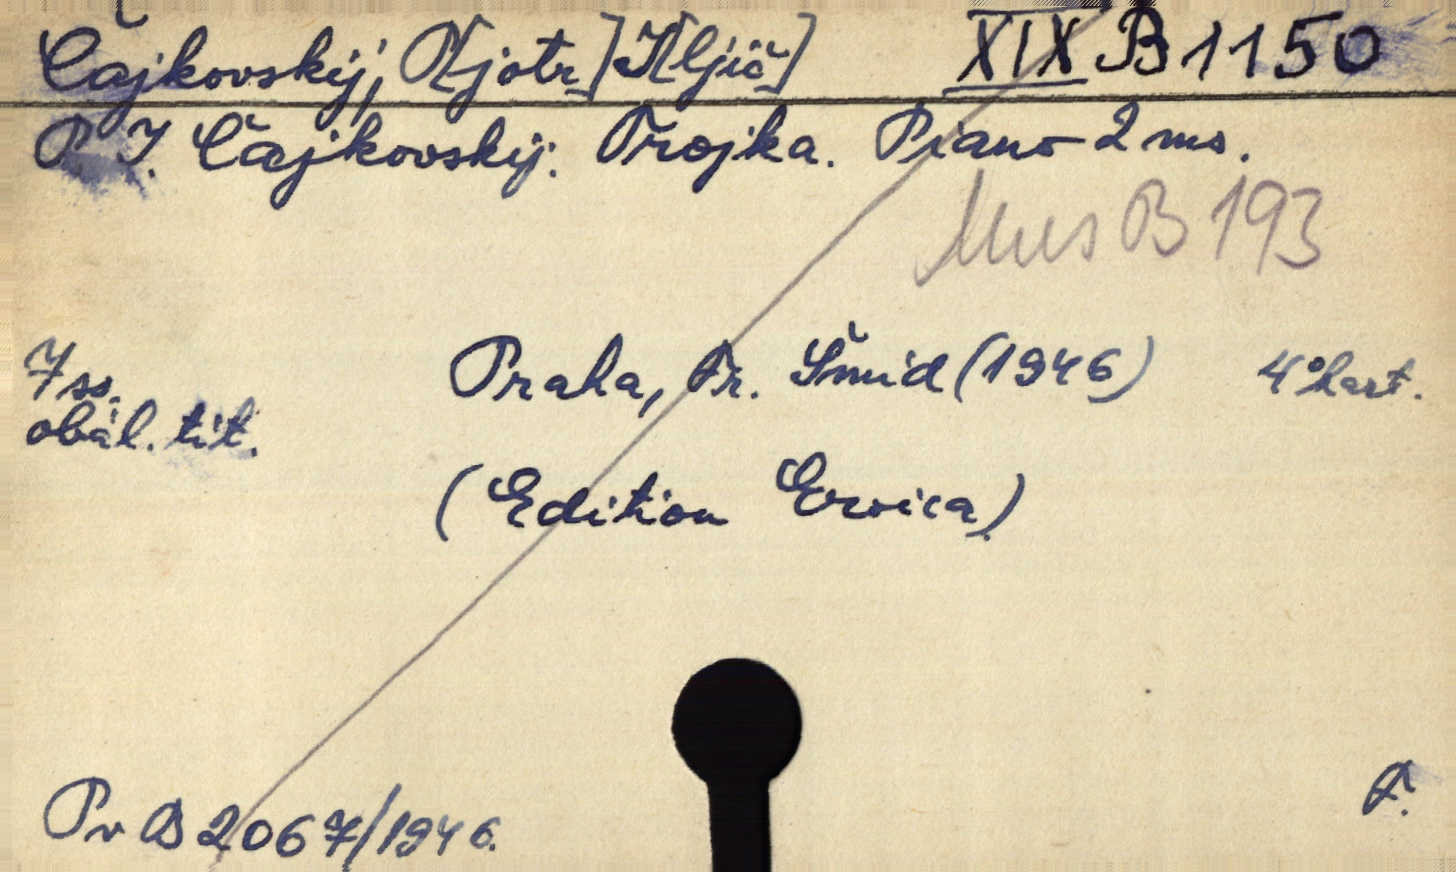 Čajkovskij, P[jotr] I[ljič] XIX B 1150
P. I. Čajkovskij: Trojka. Piano 2 ms.
Mus B 193
7 ss. Praha, Fr. Šmíd (1946) 4° kart.
obál. tit.
(Edition Eroica)
Pv B 2067/1946.